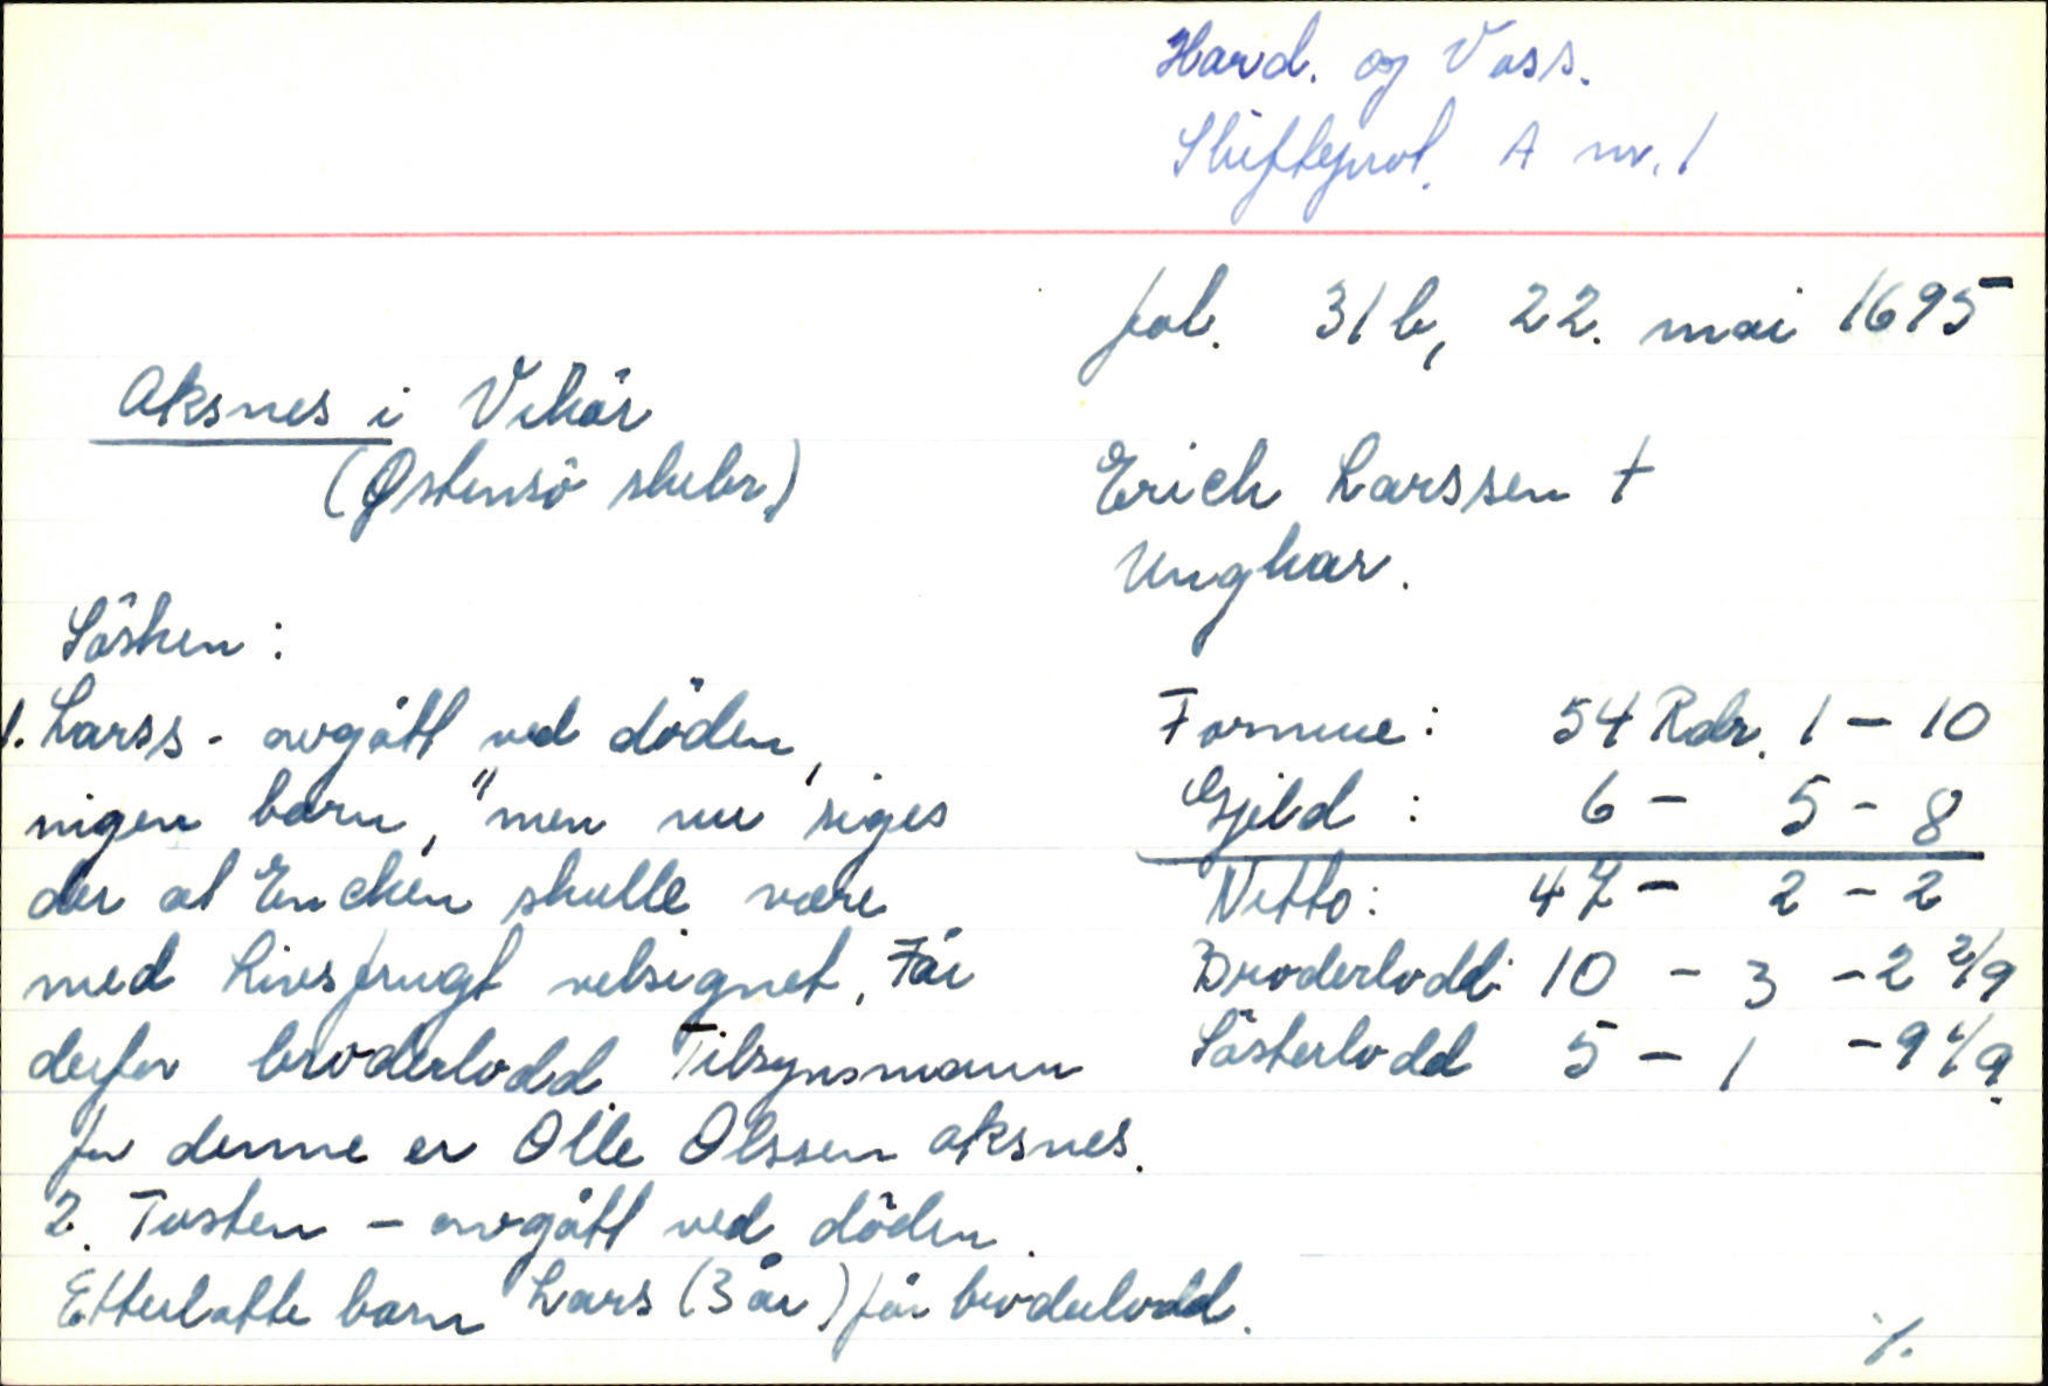 Hard. og Voss.
Skifteprot. A nr. 1
fol. 31 b, 22. mai 1695
Aksnes i Vikör
(Østensö skibr.)
Erich Larssen †
Ungkar.
Sösken:
1. Larss - avgått ved döden,
ingen barn, "men nu siges
der at Enchen skulle være
med Livsfrugt velsignet. Får
derfor broderlodd. Tilsynsmann
for denne er Olle Olssen Aksnes.
2. Tosten - avgått ved döden.
Etterlatte barn Lars (3 år) får broderlodd.
Formue: 54 Rdr. 1 - 10
Gjeld: 6 - 5 - 8
Netto: 47 - 2 - 2
Broderlodd: 10 - 3 - 2 2/9
Sösterlodd 5 - 1 - 9 1/9.
./.